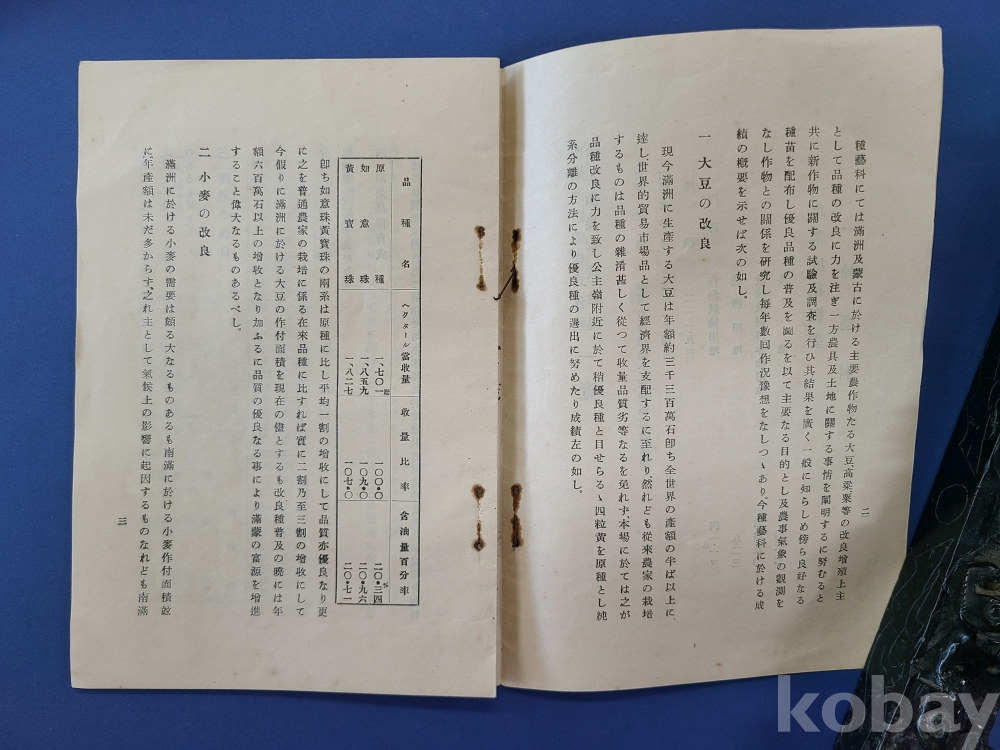 二
種藝科にては滿洲及蒙古に於ける主要農作物たる大豆、高粱粟等の改良增殖上主
として品種の改良に力を注ぎ一方農具及土地に關する事情を闡明するに努むると
共に新作物に關する試驗及調査を行ひ其結果を廣く一般に知らしめ傍ら良好なる
種苗を配布し優良品種の普及を圖るを以て主要なる目的とし及農事氣象の觀測を
なし作物との關係を研究し每年數回作況豫想をなしつゝあり今種藝科に於ける成
績の概要を示せば次の如し。
一 大豆の改良
現今滿洲に生産する大豆は年額約三千三百萬石卽ち全世界の產額の半ば以上に
達し、世界的貿易市場品として經濟界を支配するに至れり然れども從來農家の栽培
するものは品種の雜淆甚しく從つて收量品質劣等なるを免れず、本場に於ては之が
品種改良に力を致し公主嶺附近に於て稍優良種と目せらるゝ四粒黃を原種とし純
系分離の方法により優良種の選出に努めたり成績左の如し。
品種名 ヘクタール當收量 收量比率 含油量百分率
原種 一、七〇一 一〇〇・〇 二〇・三四%
如意珠 一、八五九 一〇九・〇 二〇・九六
黃寶珠 一、八二七 一〇七・〇 二〇・七一
卽ち如意珠黃寶珠の兩系は原種に比し平均一割の增收にして品質亦優良なり更
に之を普通農家の栽培に係る在來品種に比すれば實に二割乃至三割の增收にして
今假りに滿洲に於ける大豆の作付面積を現在の儘とするも改良種普及の曉には年
額六百萬石以上の增收となり加ふるに品質の優良なる事により滿蒙の富源を增進
すること偉大なるものあるべし。
二 小麥の改良
滿洲に於ける小麥の需要は頗る大なるものあるも南滿に於ける小麥作付面積竝
に年產額は未だ多からず、之れ主として氣候上の影響に起因するものなれども南滿
三
kobay